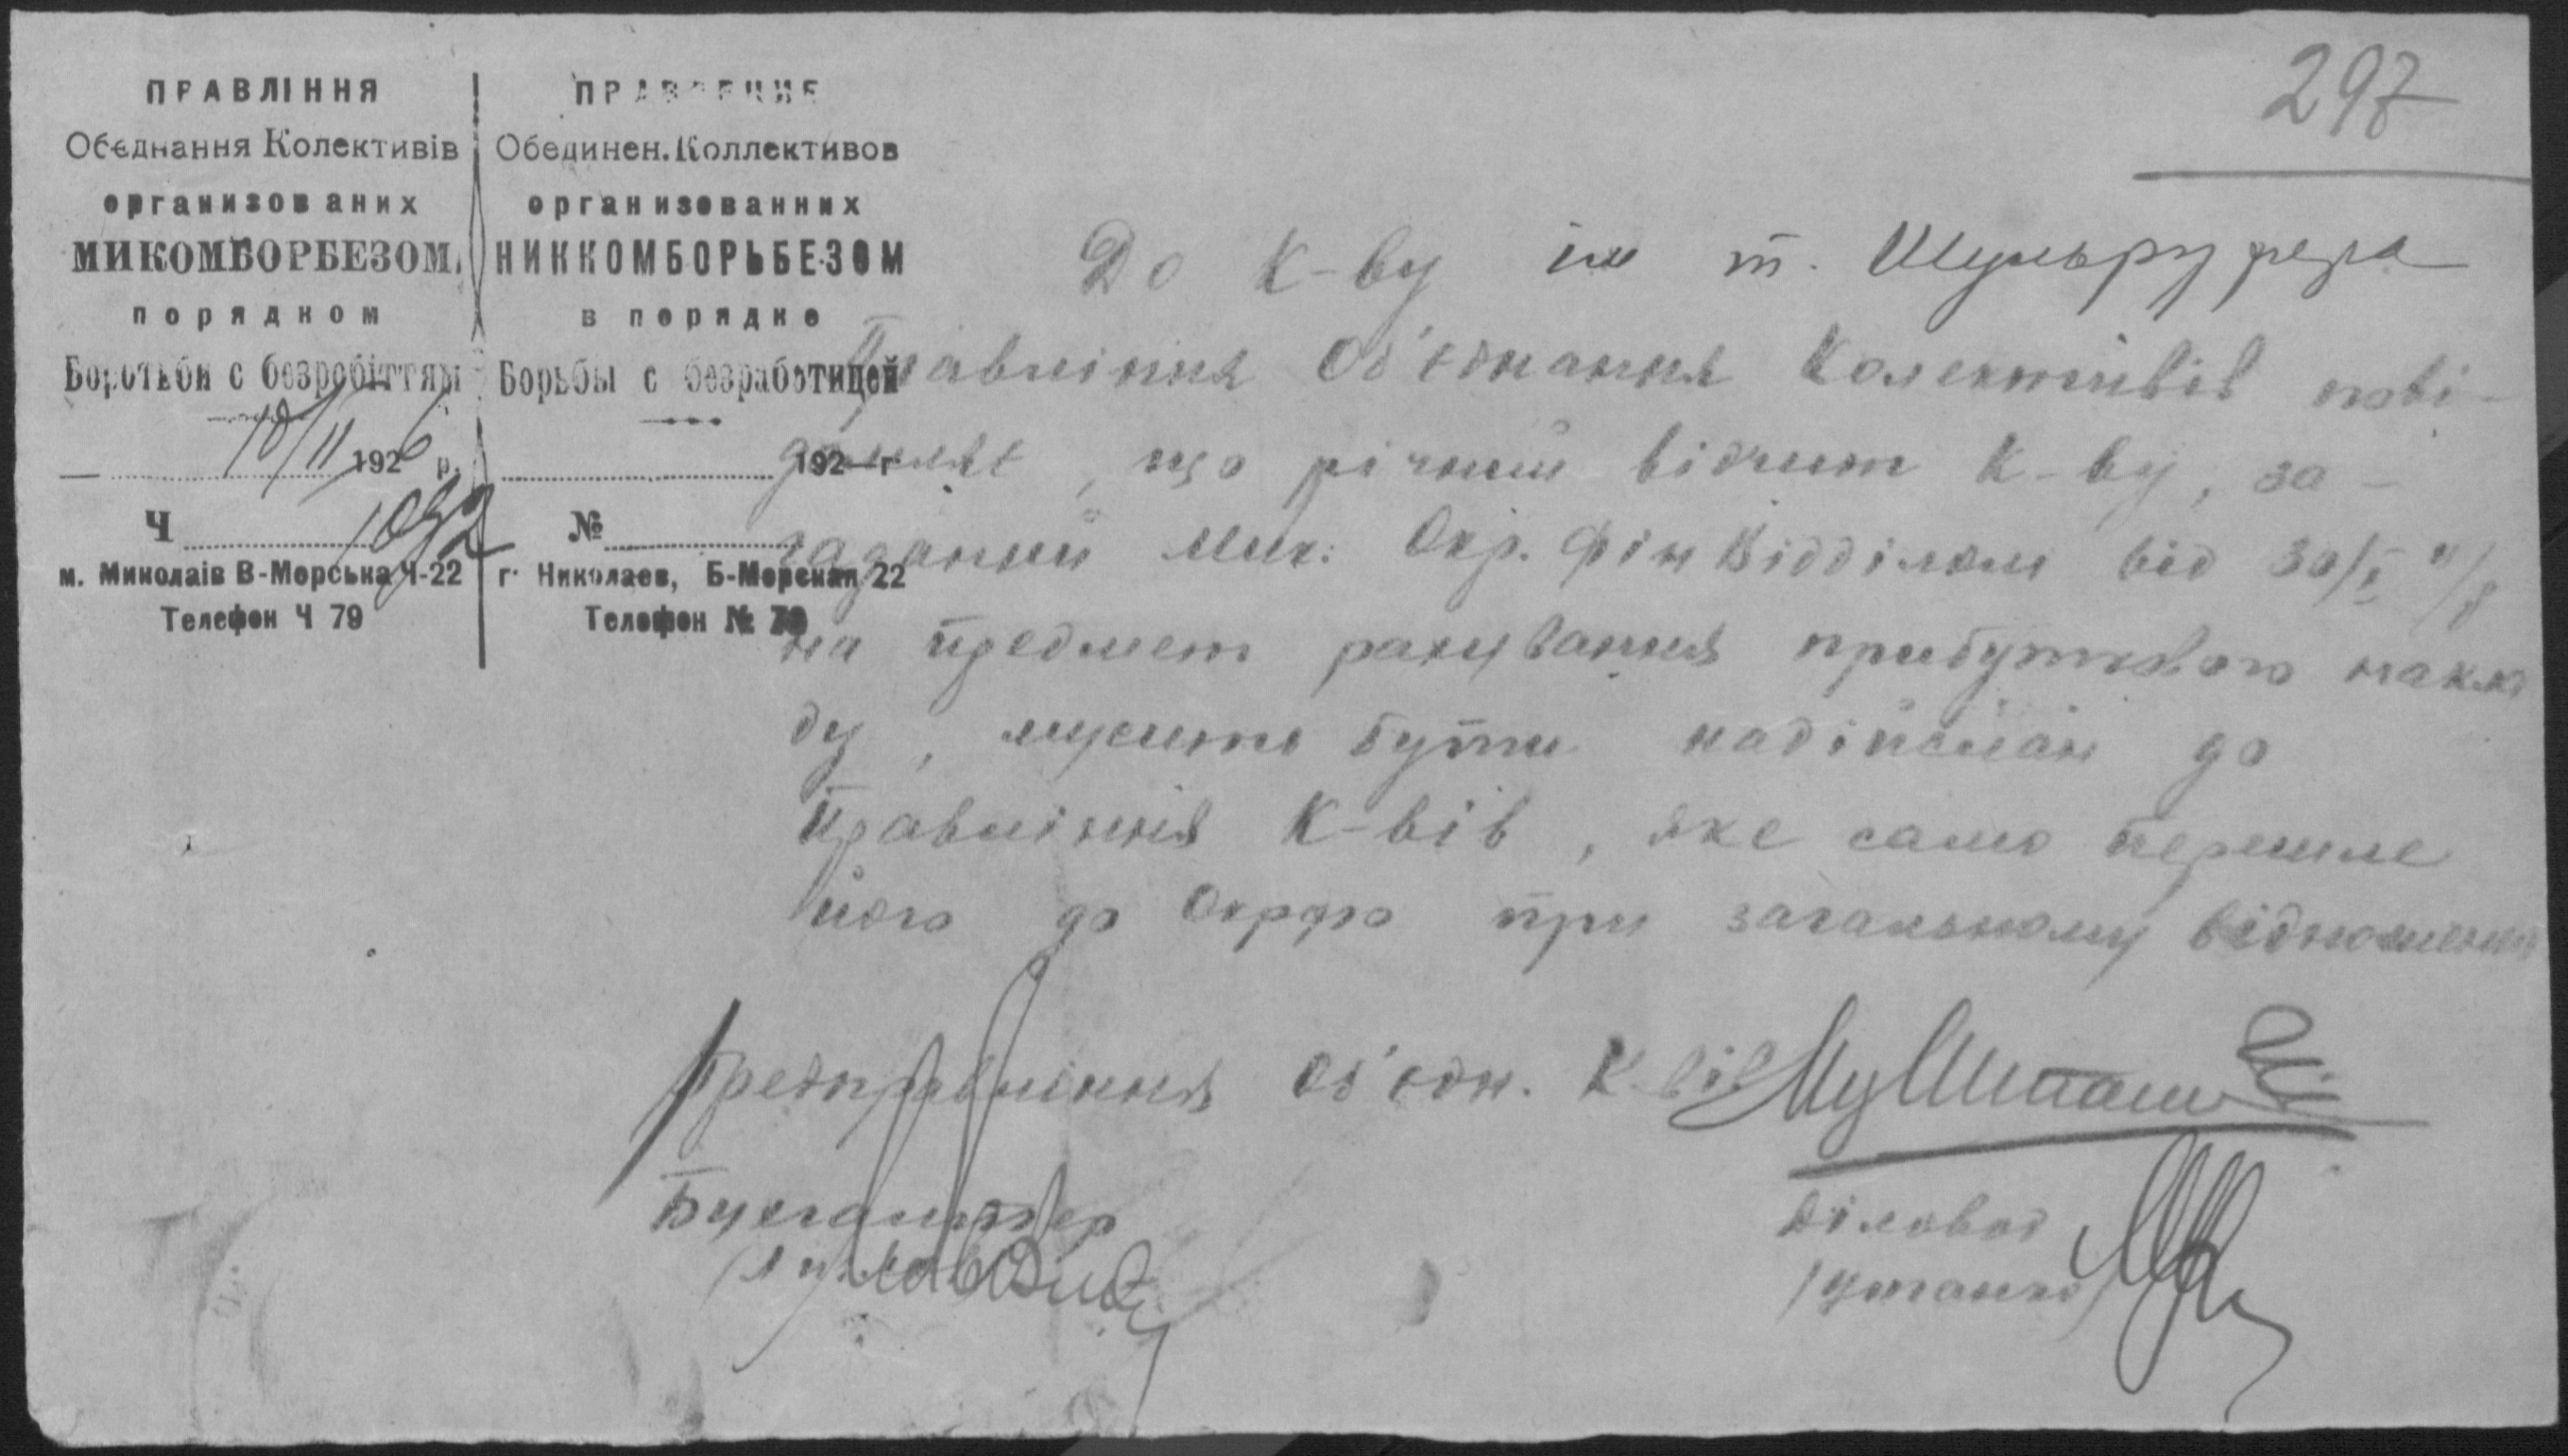 297
ПРАВЛІННЯ
Обєднання Колективів
организованих
МИКОМБОРБЕЗОМ,
порядком
Боротьби с безробіттям
10/II 1926 р.
Ч
м. Миколаів В-Морська Ч-22
Телефон Ч 79
ПРАВЛЕНИЕ
Обединен. Коллективов
организованных
НИККОМБОРЬБЕЗОМ
в порядке
Борьбы с безработицей
192 г
№
г. Николаев, Б-Морская 22
Телефон № 79
До К-ву ім т.
Правління Об'єднання Колективів пові-
домляє, що річний відчит К-ву, за-
гаданий Мик. Окр. Фін Відділом від 30/I ц/р
на предмет рахування прибуткового накла
ду, мусить бути надіслан до
Правління К-вів, яке само перешле
його до Окрфо при загальному відношенні
Предправління Об'єдн. К-вів
Бухгалтер
Діловод